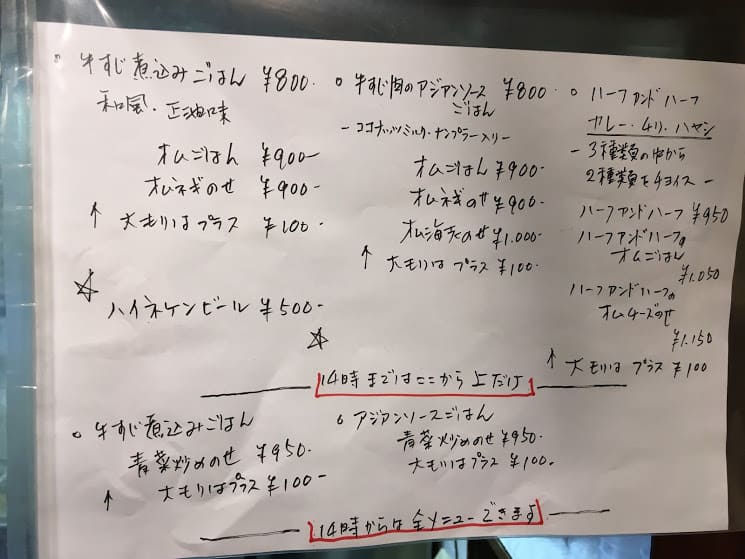 。牛すじ煮込みごはん ¥800-
和風・正油味
オムごはん ¥900-
オムネギのせ ¥900-
↑ 大もりはプラス ¥100-
☆
ハイネケンビール ¥500-
☆
。牛すじ肉のアジアンソース
ごはん ¥800-
-ココナッツミルク・ナンプラー入り-
オムごはん ¥900-
オムネギのせ ¥900-
オム海老のせ ¥1.000-
↑ 大もりは プラス ¥100-
。ハーフアンドハーフ
カレー・チリ・ハヤシ
-3種類の中から
2種類をチョイス-
ハーフアンドハーフ ¥950
ハーフアンドハーフの
オムごはん
¥1.050
ハーフアンドハーフの
オムチーズのせ
¥1.150
↑ 大もりは プラス ¥100
14時まではここから上だけ
。牛すじ煮込みごはん
青菜炒めのせ ¥950-
↑ 大もりはプラス ¥100-
。アジアンソースごはん
青菜炒めのせ ¥950-
大もりはプラス ¥100-
14時からは全メニューできます